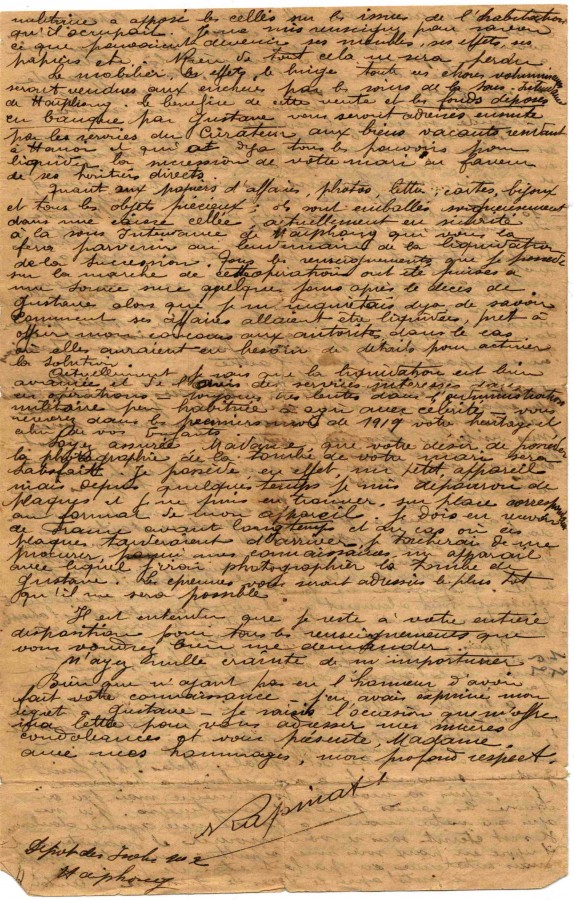 militaire a apposé les cellés sur les issues de l'habitation
qu'il occupait. Je me mis renseigné pour savoir
ce que pouvaient devenir ses meubles, ses effets, ses
papiers etc. Rien de tout cela ne sera perdu
Le mobilier, les effets, le linge toute les choses volumineuses
seront vendues aux enchères par les soins de la sous-Intendance
de Haïphong. le benefice de cette vente et les fonds déposés
en banque par Gustave vous seront adressés ensuite
par les services du Curateur aux biens vacants résidant
à Hanoï et qui at deja tous les pouvoirs pour
liquider la succession de votre mari en faveur
de ses héritiers directs.
Quant aux papiers d'affaires, photos, lettres, cartes, bijoux
et tous les objets précieux; ils sont emballés soigneusement
dans une caisse cellée, actuellement en sécurité
à la sous Intendance de Haïphong qui vous la
fera parvenir au lendemain de la liquidation
de la succession. Tous les renseignements que je possède
sur la marche de ces opérations ont été puisés à
une source sure quelques jours après le décès de
Gustave alors que je m'inquiétais deja de savoir
comment ses affaires allaient être liquidées, prêt à
offrir mon concours aux autorités, dans le cas
où elle auraient eu besoin de détails pour activer
la solution
Actuellement je sais que la liquidation est bien
avancée et de l'avis des services intéressés dans
ces opérations - toujours très lentes dans l'administration
militaire peu habituée à agir avec célérité - vous
recevrez dans les premiers mois de 1919 votre héritage et
celui de vos enfants
Soyez assurée Madame que votre désir de posséder
la photographie de la tombe de votre mari sera
satisfait. Je possède en effet un petit appareil
mais depuis quelques temps je suis dépourvu de
plaques et je ne puis en trouver, sur place correspondant
au format de mon appareil. Je dois en recevoir
de France avant longtemps et au cas où ces
plaques tarderaient d'arriver je tacherai de me
procurer, parmi mes connaissances, un appareil
avec lequel j'irai photographier la tombe de
Gustave. Les épreuves vous seront adressées le plus tôt
qu'il me sera possible
Il est entendu que je reste à votre entière
disposition pour tous les renseignements que
vous voudrez bien me demander.
N'ayez nulle crainte de m'importuner
Bien que n'ayant pas eu l'honneur d'avoir
fait votre connaissance - j'en avais exprimé mon
regret à Gustave - je saisis l'occasion que m'offre
ma lettre pour vous adresser mes sincères
condoléances et vous présente, Madame,
avec mes hommages, mon profond respect.
Rapinat
Depot des Isolés no 2
Haïphong